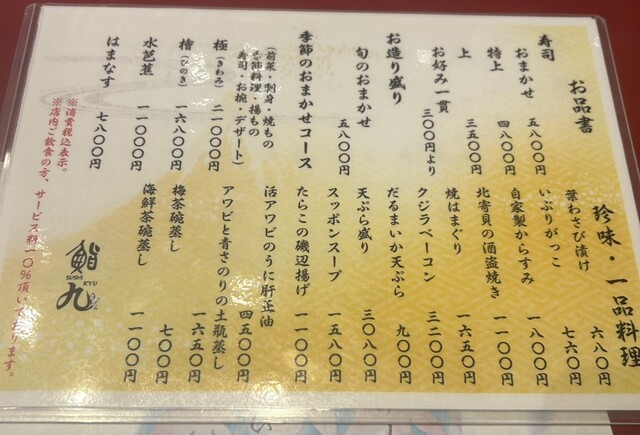 お品書
寿司
おまかせ 五八〇〇円
特上 四八〇〇円
上 三五〇〇円
お好み一貫 三〇〇円より
お造り盛り
旬のおまかせ 五八〇〇円
季節のおまかせコース
(前菜・刺身・焼もの
季節料理・揚もの
寿司・お椀・デザート)
極(きわみ) 二一〇〇〇円
檜(ひのき) 一六八〇〇円
水芭蕉 一一〇〇〇円
はまなす 七八〇〇円
※消費税込表示。
※店内ご飲食の方、サービス料一〇%頂いております。
珍味・一品料理
葉わさび漬け 六八〇円
いぶりがっこ 七六〇円
自家製からすみ 一八〇〇円
北寄貝の酒盗焼き 一一〇〇円
焼はまぐり 一六五〇円
クジラベーコン 三二〇〇円
だるまいか天ぷら 九〇〇円
天ぷら盛り 三〇八〇円
スッポンスープ 一五八〇円
たらこの磯辺揚げ 一一〇〇円
活アワビのうに肝正油 四五〇〇円
アワビと青さのりの土瓶蒸し 一六五〇円
梅茶碗蒸し 七〇〇円
海鮮茶碗蒸し 一一〇〇円
鮨
SUSHI
KYU
九